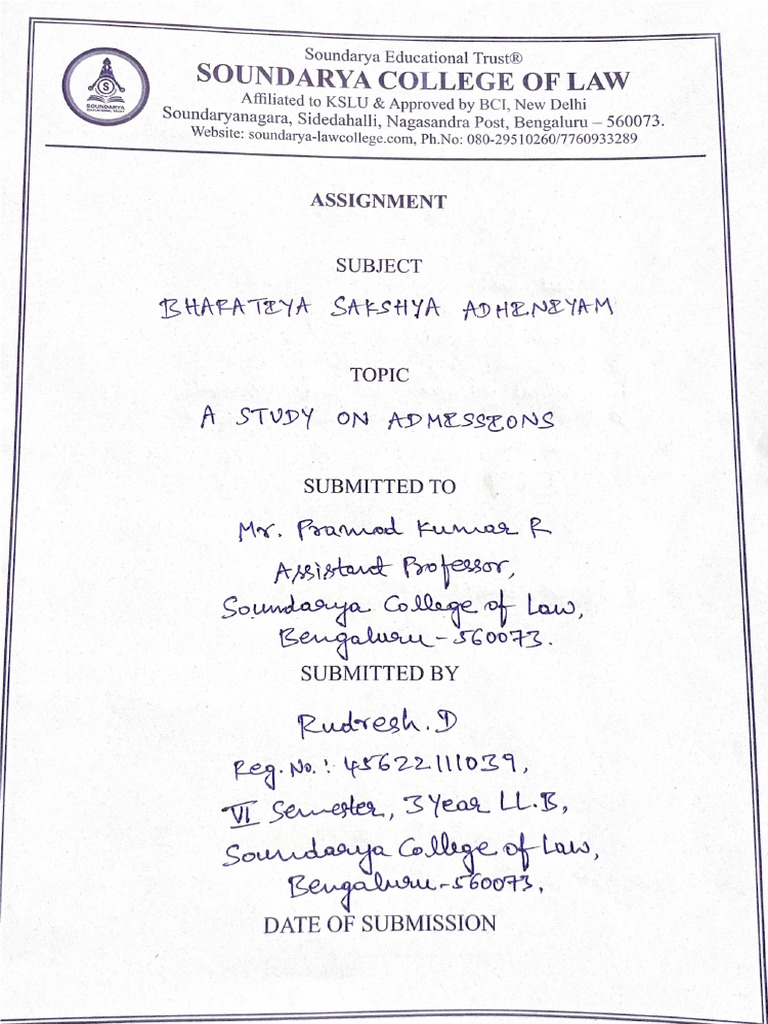 Soundarya Educational Trust®
SOUNDARYA COLLEGE OF LAW
Affiliated to KSLU & Approved by BCI, New Delhi
Soundaryanagara, Sidedahalli, Nagasandra Post, Bengaluru – 560073.
Website: soundarya-lawcollege.com, Ph.No: 080-29510260/7760933289
S
SOUNDARYA
EDUCATIONAL TRUST
ASSIGNMENT
SUBJECT
BHARATIYA SAKSHYA ADHINIYAM
TOPIC
A STUDY ON ADMISSIONS
SUBMITTED TO
Mr. Pramod Kumar R
Assistant Professor,
Soundarya College of Law,
Bengaluru-560073.
SUBMITTED BY
Rudresh.D
Reg.No.: 45622111039,
VI Semester, 3 Year LL.B,
Soundarya College of Law,
Bengaluru-560073,
DATE OF SUBMISSION